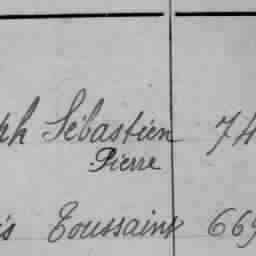 ph Sébastien 74
Pierre
is Toussaint 669